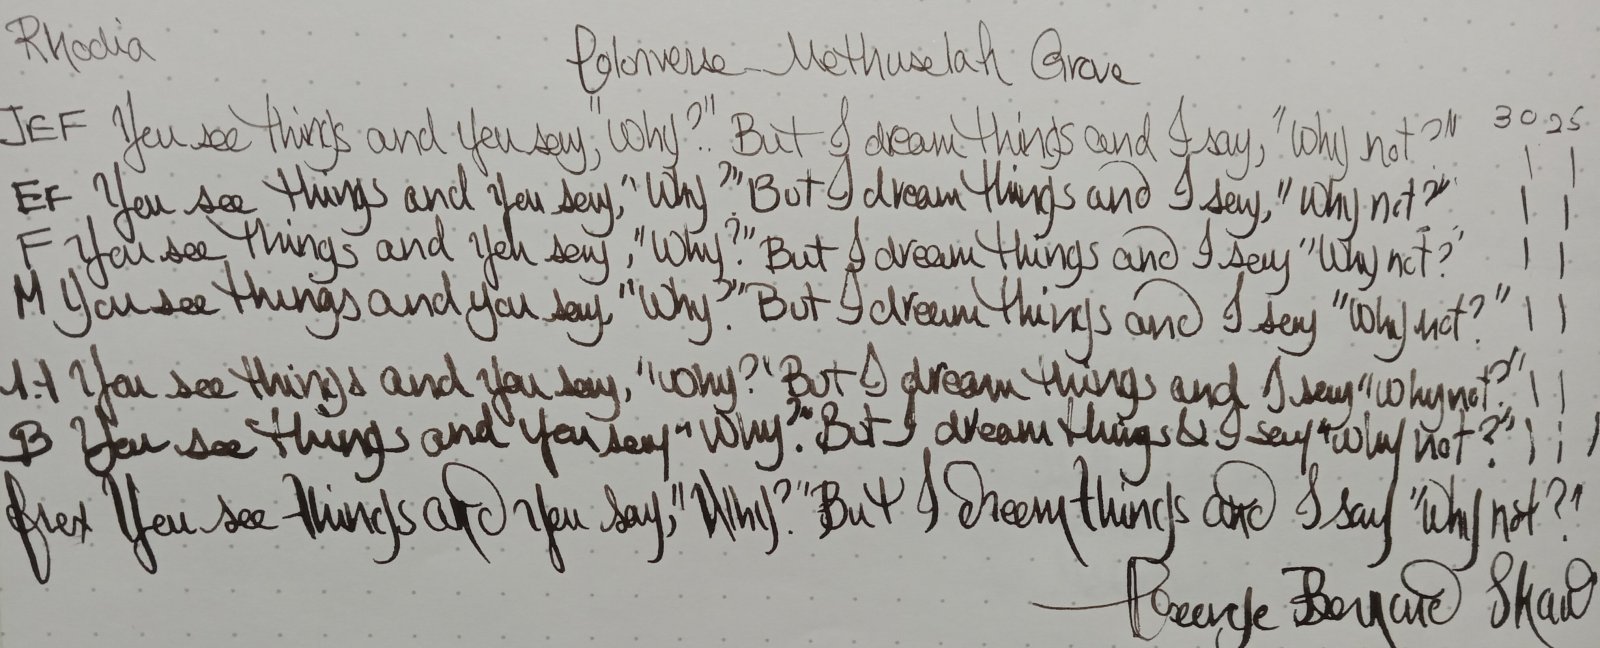 Rhodia
Colorverse Methuselah Grove
JEF You see things and you say, "Why?" But I dream things and I say, "Why not?" 30 25
EF You see things and you say, "Why?" But I dream things and I say, "Why not?" | |
F You see things and you say, "Why?" But I dream things and I say "Why not?" | |
M You see things and you say, "Why?" But I dream things and I say "Why not?" | |
1.1 You see things and you say, "Why?" But I dream things and I say "Why not?" | |
B You see things and you say "Why?" But I dream things & I say "Why not?" | | |
flex You see things and you say, "Why?" But I dream things and I say "Why not?"
George Bernard Shaw